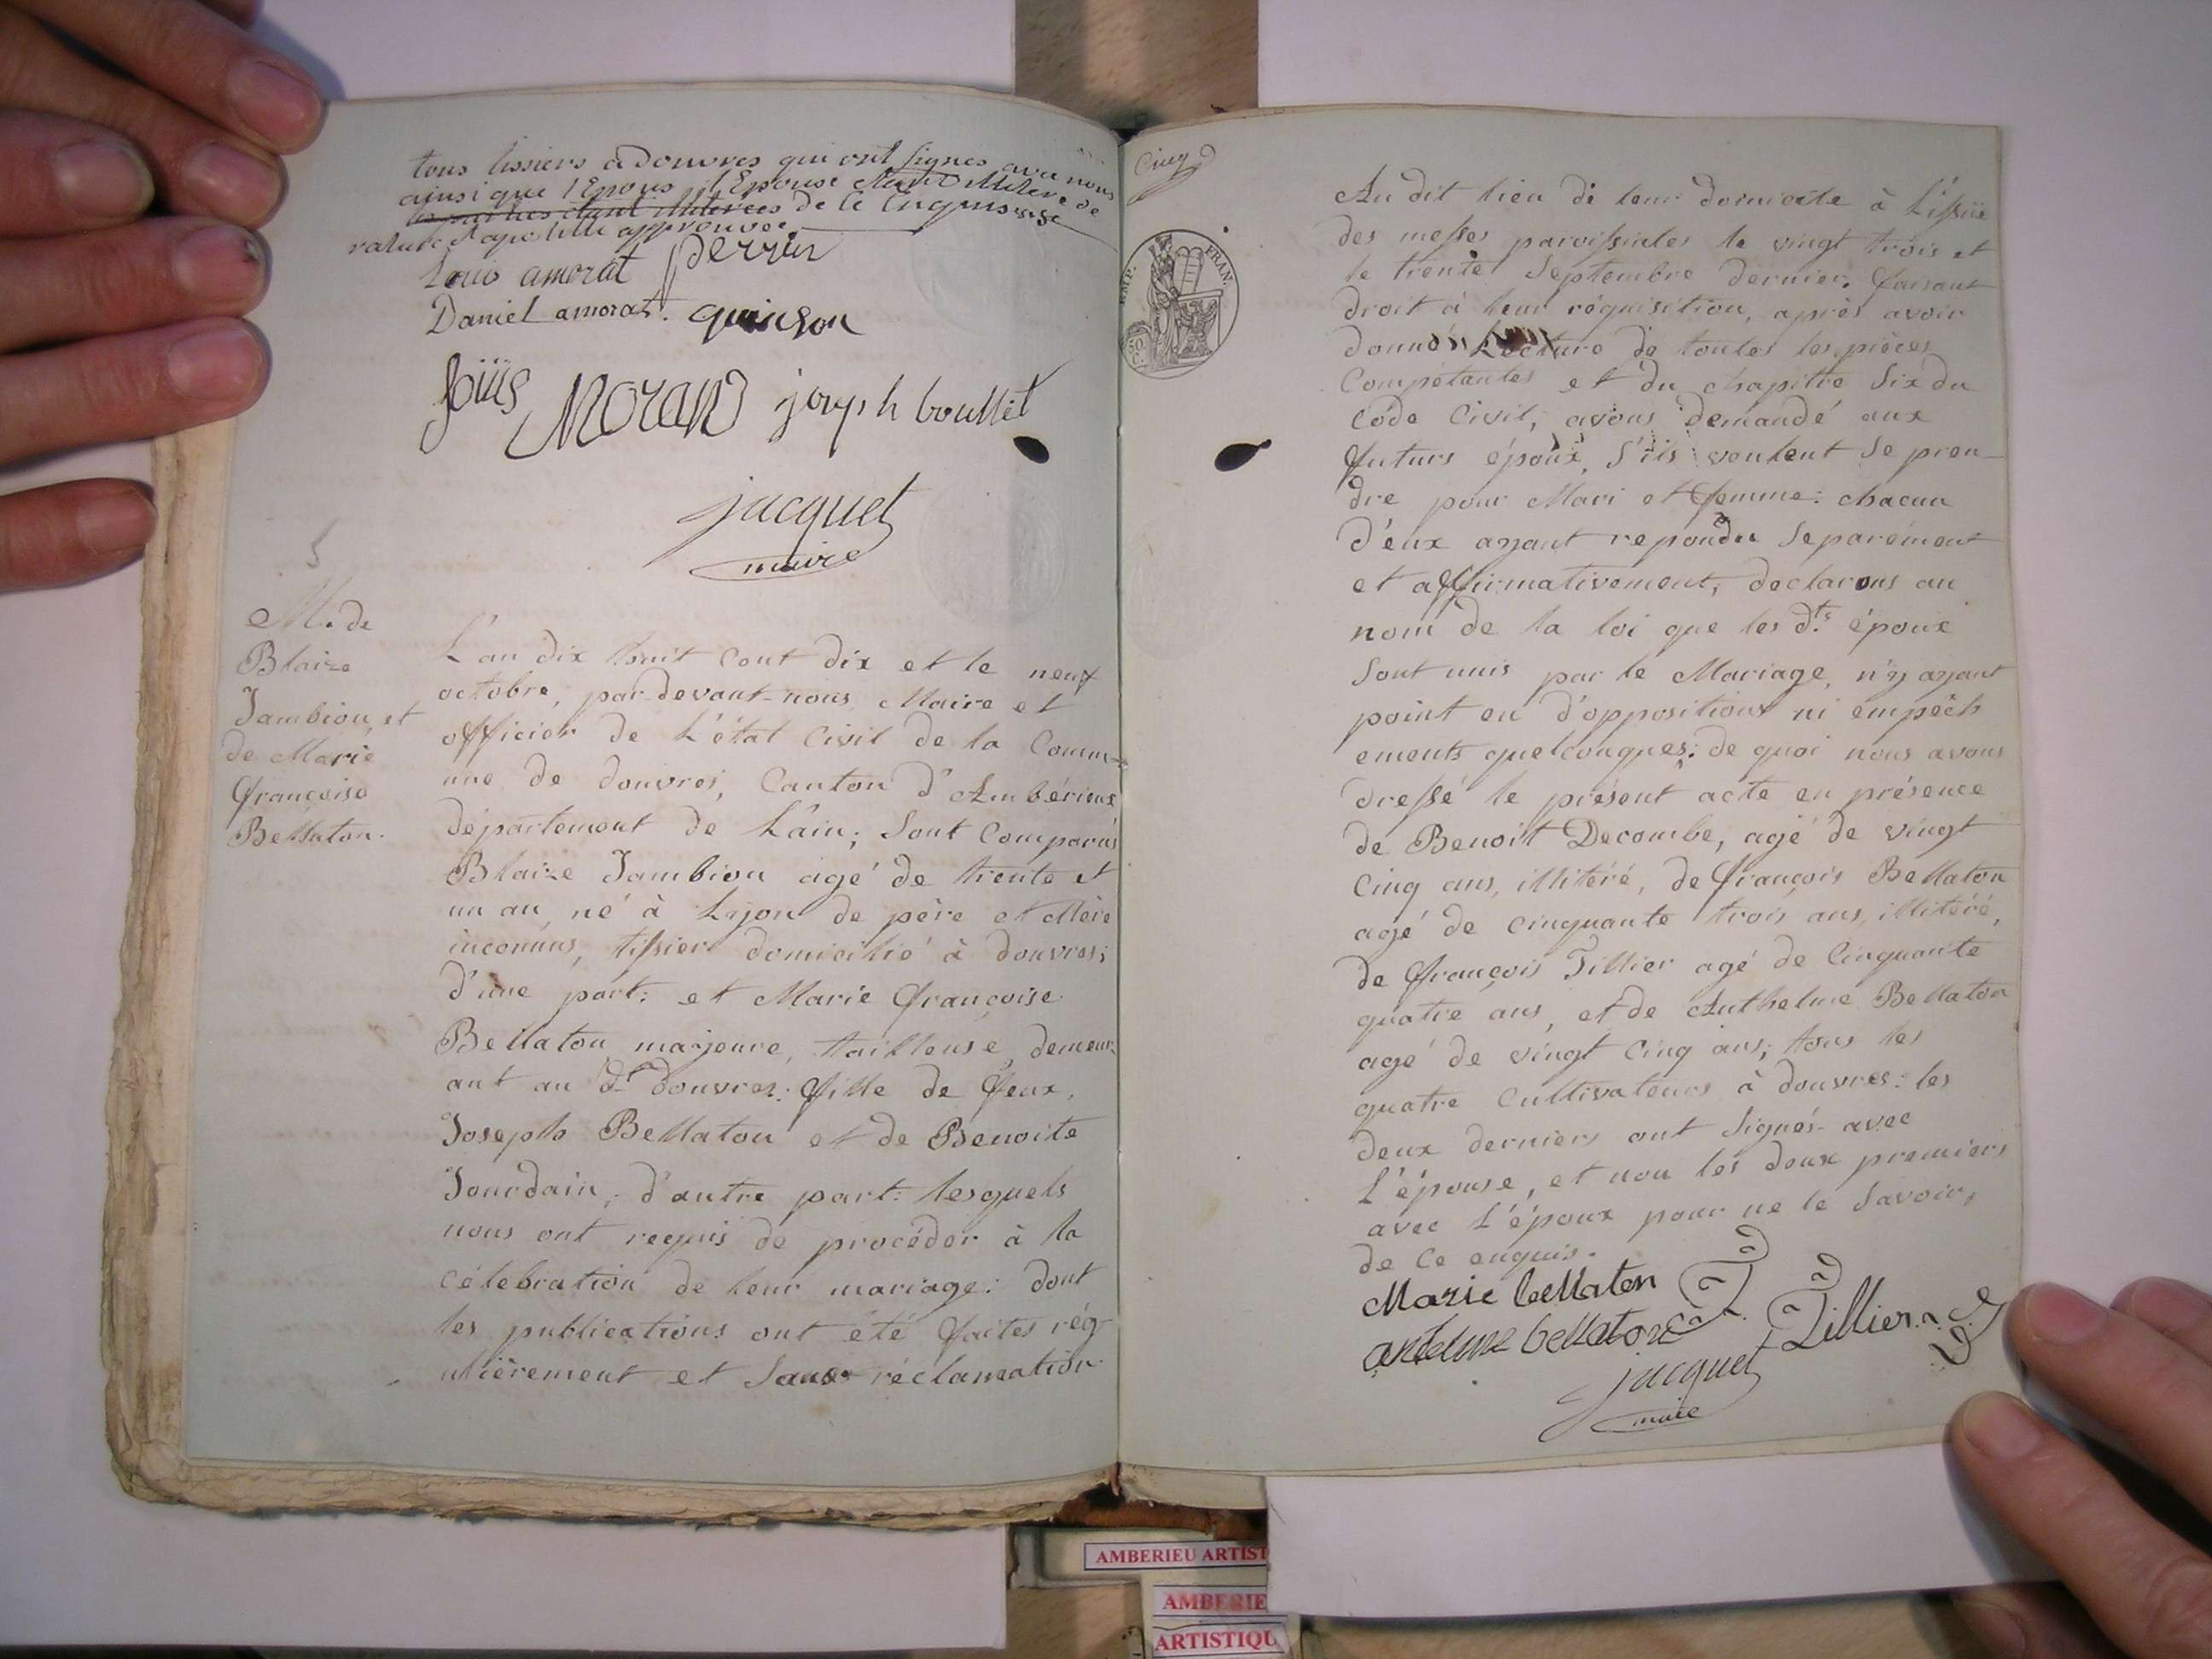 tous tissiers à douvres qui ont signés avec nous
ainsi que l'Epoux, l'Epouse étant illitérée de
les parties étant illiterees de ce enquis
rature et apostille approuvée
Louis amorat perrin
Daniel amorat. quinson
Louis MORAND joseph boullet
jacquet
maire
5
M. de
Blaize
Jambion, et
de Marie
françoise
Bellaton.
L'an dix huit cent dix et le neuf
octobre, par-devant-nous Maire et
officier de L'état Civil de la Comm-
une de douvres, Canton d'Ambérieux
département de L'ain; Sont Comparus
Blaize Jambion agé de trente et
un an, né à Lyon de père et Mère
inconnus, tissier domicilié à douvres;
d'une part: et Marie françoise
Bellaton majeure, tailleuse, demeur-
ant au dt douvres: fille de feux,
Joseph Bellaton et de Benoite
Jourdain, d'autre part: lesquels
nous ont requis de procéder à la
célébration de leur mariage: dont
les publications ont été faites rég-
ulièrement et Sans réclamation
Cinq
EMP. FRAN.
50
C.
Au dit lieu de leur domicile à L'issüe
des messes paroissiales le vingt trois et
le trente Septembre dernier. faisant
droit à leur réquisition, après avoir
donné Lecture de toutes les pièces
Compétantes et du chapitre Six du
Code Civil, avons demandé aux
futurs époux, S'ils veulent Se pren-
dre pour Mari et femme: chacun
d'eux ayant repondu Séparément
et affirmativement, declarons au
nom de la loi que les dts époux
Sont unis par le Mariage, n'y ayant
point eu d'oppositions ni empêch
ements quelconques: de quoi nous avons
dressé le présent acte en présence
de Benoit Decombe, agé de vingt
Cinq ans, illitéré, de françois Bellaton
agé de cinquante trois ans, illitéré,
de françois Tillier agé de Cinquante
quatre ans, et de Anthelme Bellaton
agé de vingt Cinq ans; tous les
quatre Cultivateurs à douvres: les
deux derniers ont Signés avec
L'épouse, et non les deux premiers
avec L'époux pour ne le Savoir,
de Ce enquis.
Marie bellaton
antelme bellaton Tillier
jacquet
maire
AMBERIEU ARTIST
AMBERIE
ARTISTIQU